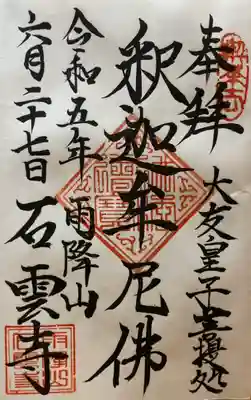 奉拝
大友皇子御墓所
釈迦牟尼佛
雨降山
石雲寺
令和五年
六月二十七日